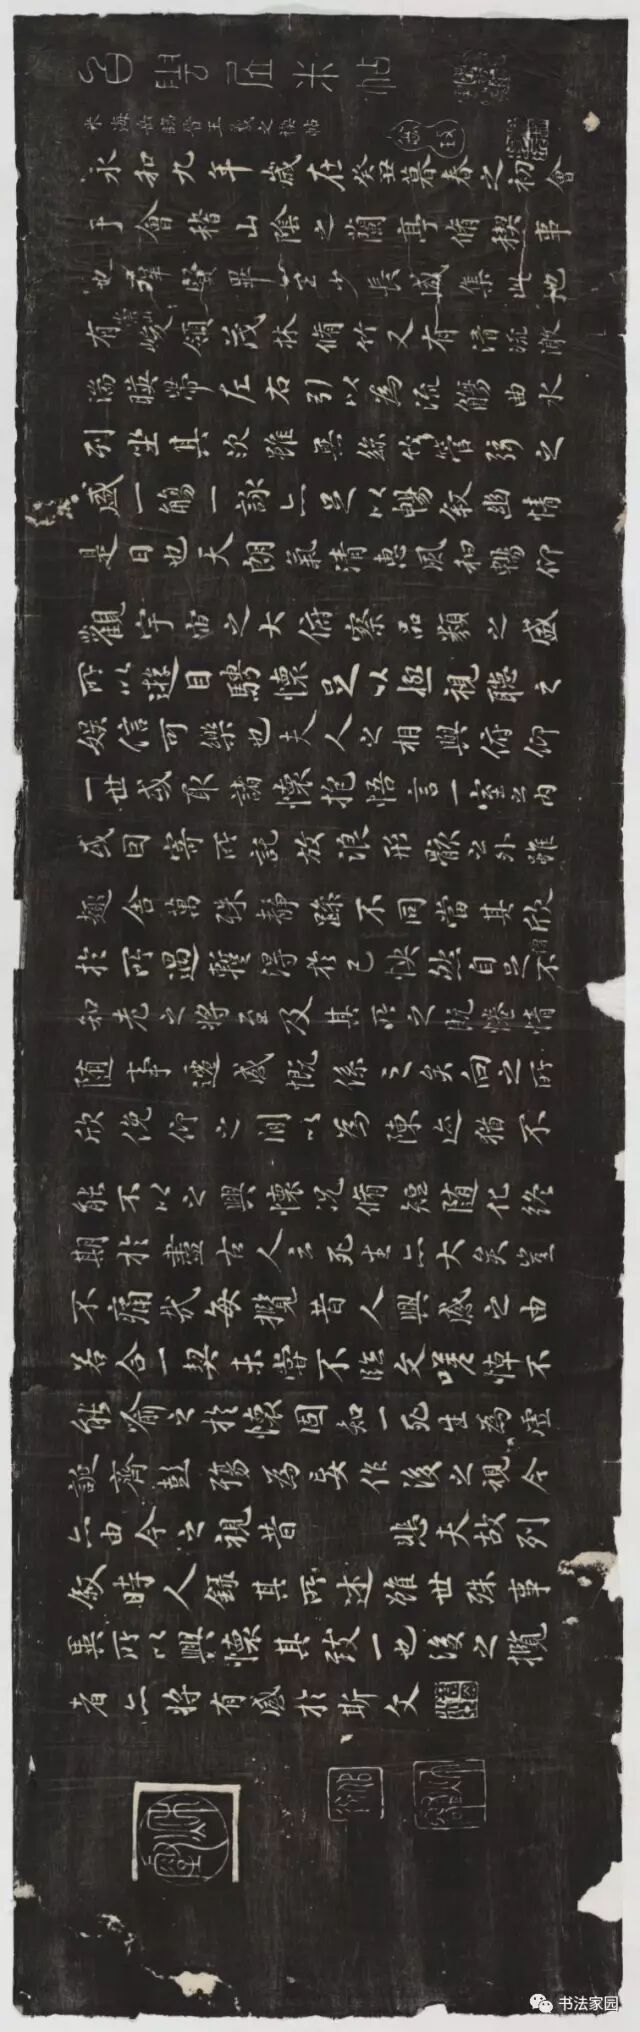 白雲居米帖
米海岳臨晉王羲之禊帖
永和九年歲在癸丑暮春之初會
于會稽山陰之蘭亭脩稧事
也群賢畢至少長咸集此地
有崇山峻領茂林脩竹又有清流激
湍暎帶左右引以為流觴曲水
列坐其次雖無絲竹管弦之
盛一觴一詠亦足以暢敘幽情
是日也天朗氣清惠風和暢仰
觀宇宙之大俯察品類之盛
所以遊目騁懷足以極視聽之
娛信可樂也夫人之相與俯仰
一世或取諸懷抱悟言一室之內
或因寄所託放浪形骸之外雖
趣舍萬殊靜躁不同當其欣
於所遇暫得於己怏然自足不
知老之將至及其所之既惓情
隨事遷感慨係之矣向之所
欣俛仰之間以為陳迹猶不
能不以之興懷況脩短隨化終
期於盡古人云死生亦大矣豈
不痛哉每攬昔人興感之由
若合一契未嘗不臨文嗟悼不
能喻之於懷固知一死生為虛
誕齊彭殤為妄作後之視今
亦由今之視昔 悲夫故列
敘時人錄其所述雖世殊事
異所以興懷其致一也後之攬
者亦將有感於斯文
书法家园